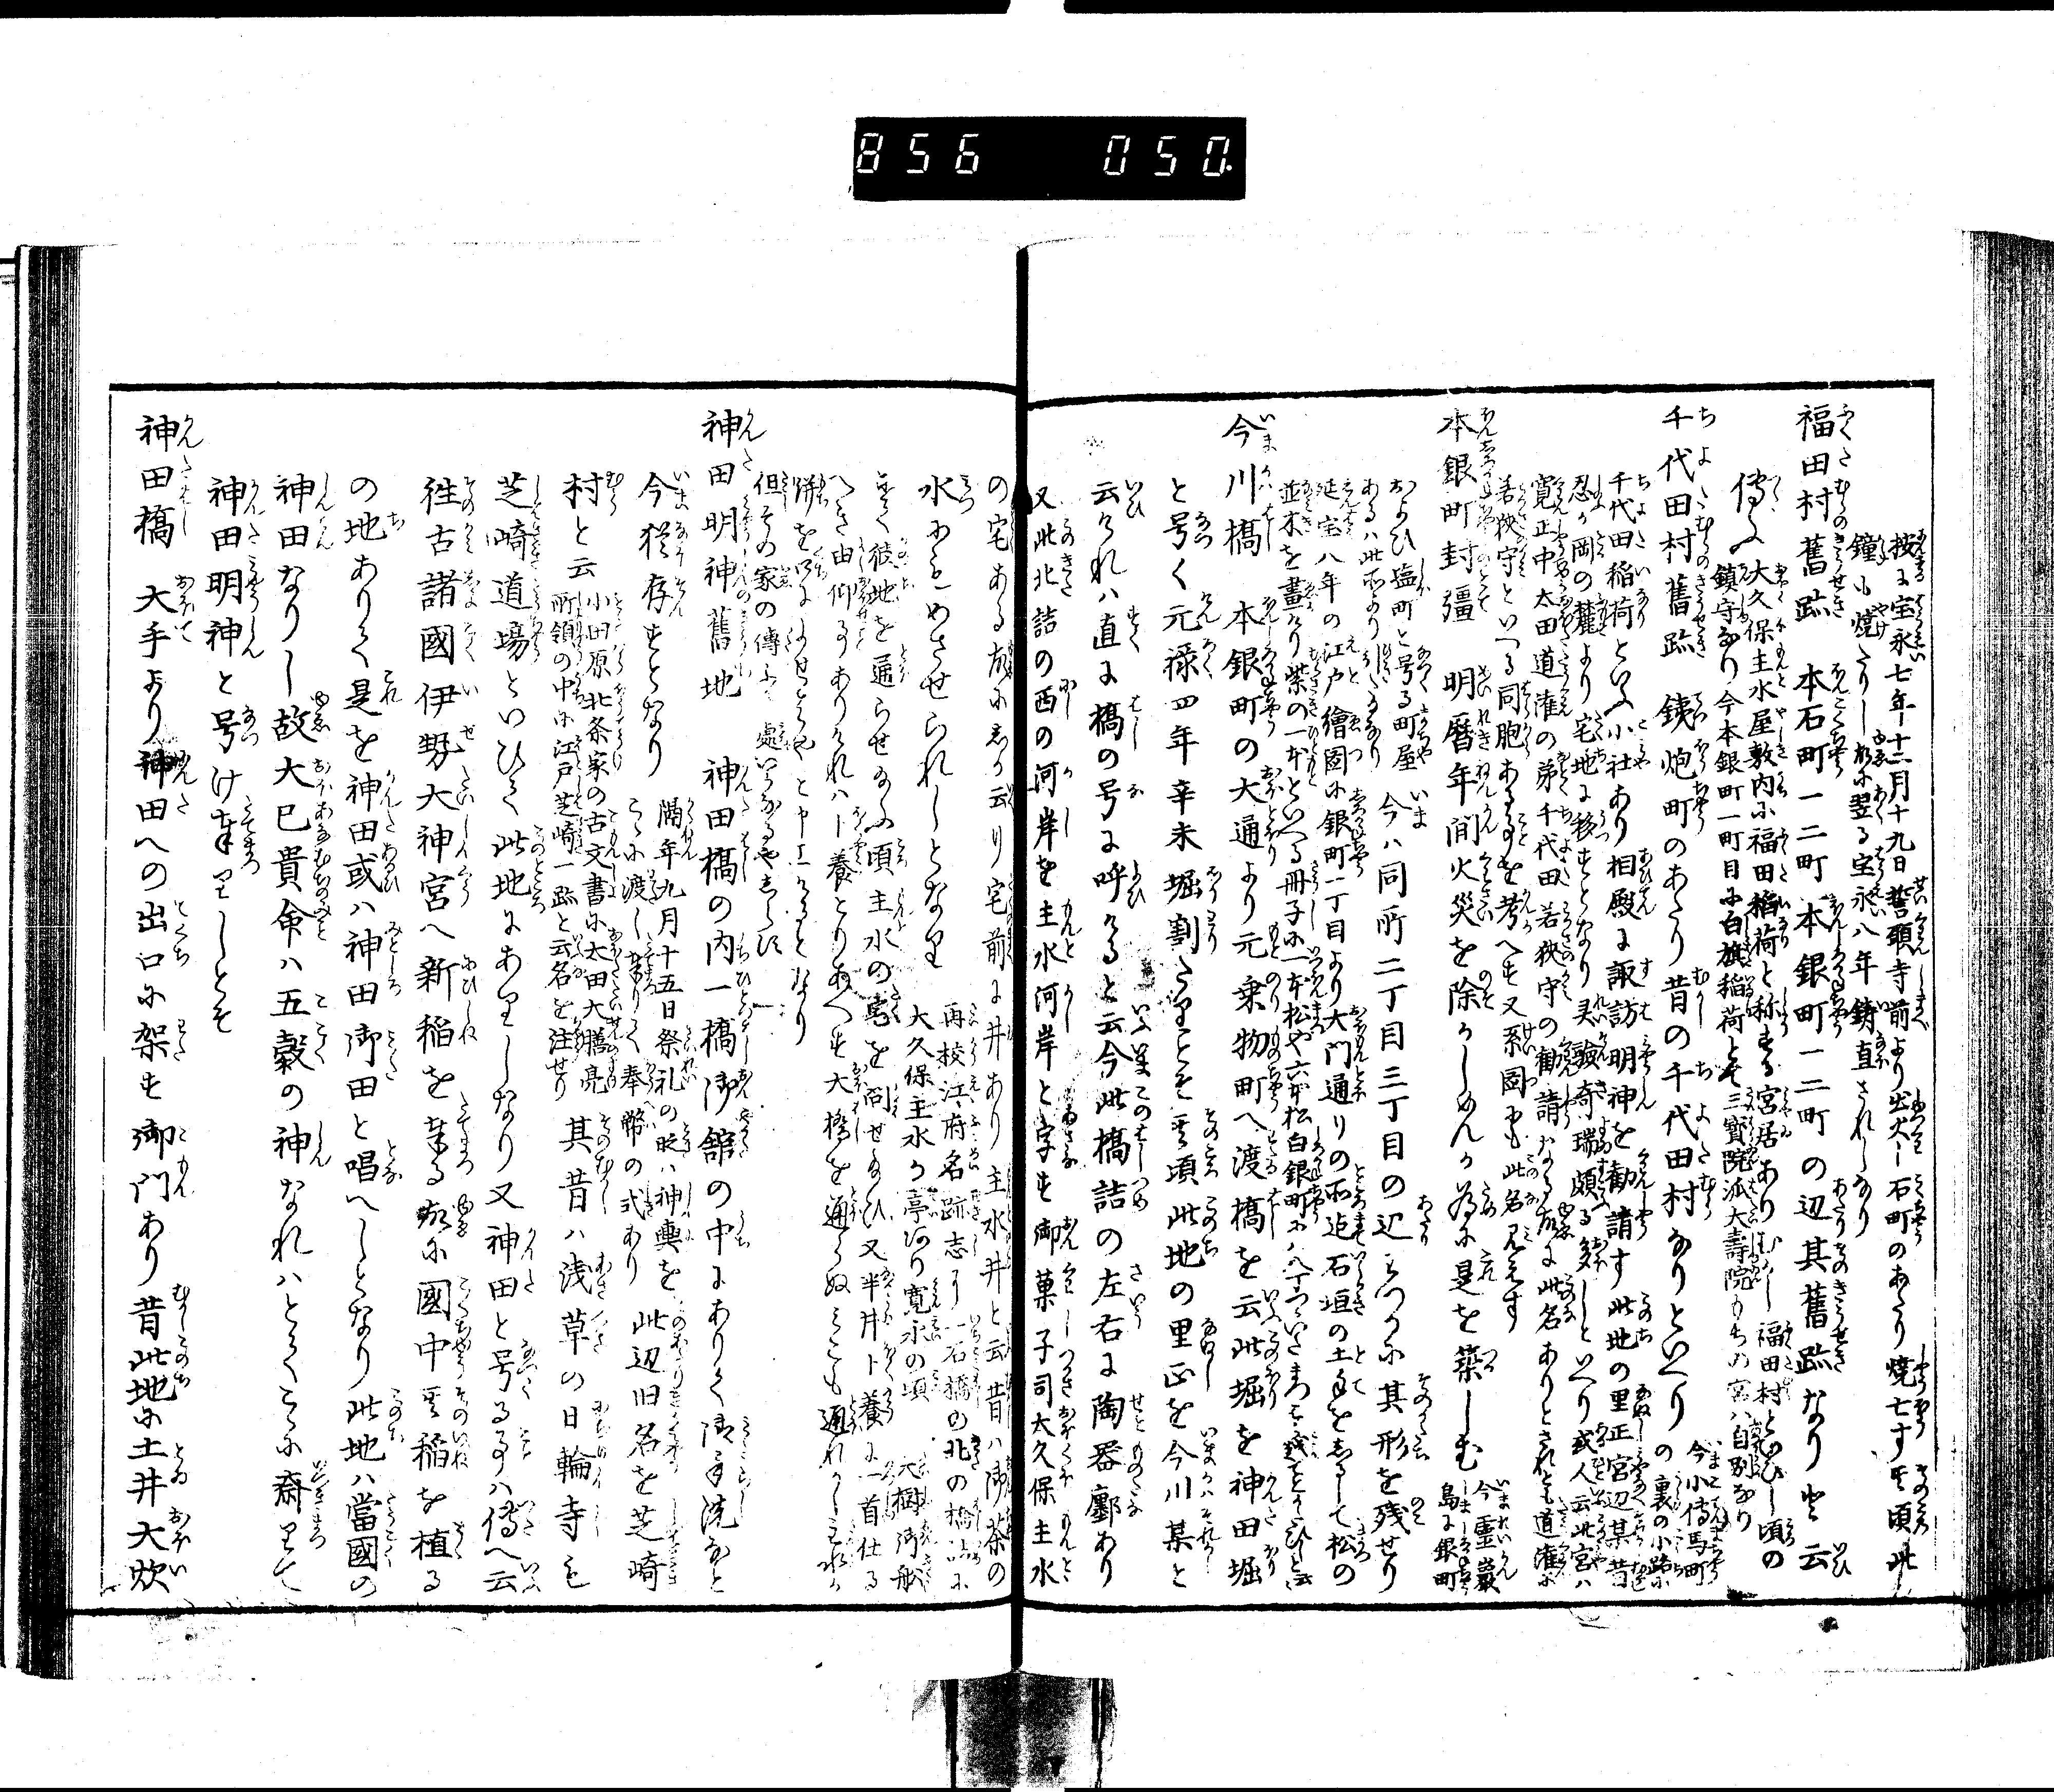 856 050
按に宝永七年十二月十九日誓願寺前より出火し石町のあたり焼亡す其頃此
鐘も焼たりし故に翌る宝永八年鋳直されしなり
福田村舊跡 本石町一二町本銀町一二町の辺其舊跡なりと云
傳ふ大久保主水屋敷内に福田稲荷と称する宮居ありむかし福田村といひし頃の
鎮守なり今本銀町一町目に白旗稲荷とて三寶院派大壽院もちの宮ハ自別なり
千代田村舊跡 鉄炮町のあたり昔の千代田村なりといへり
今小傳馬町
の裏の小路に
千代田稲荷といふ小社あり相殿に諏訪明神を勧請す此地の里正宮辺某昔
忍か岡の麓より宅地に移すとなり霊験奇瑞頗る多しといへり或人云此宮ハ
寛正中太田道灌の弟千代田若狭守の勧請なる故に此名ありとされとも道灌に
若狭守といへる同胞ある事を考へす又系圖にも此名見えす
本銀町封疆 明暦年間火災を除かしめんか為に是を築しむ
今霊巌
島に銀町
および塩町と号る町屋
あるハ此所よりうつしたるなり
今ハ同所二丁目三丁目の辺にわつかに其形を残せり
延宝八年の江戸繪圖に銀町一丁目より大門通りの所迄石垣の土手をしるして松の
並木を畫けり紫の一本といへる冊子に一本松や六本松白銀町にハ八丁つゝいたまつを残とうたひしと云
今川橋 本銀町の大通より元乗物町へ渡橋を云此堀を神田堀
と号く元禄四年辛未堀割たりとそ其頃此地の里正を今川某と
云けれハ直に橋の号に呼けると云今此橋詰の左右に陶器鄽あり
又此北詰の西の河岸を主水河岸と字す御菓子司大久保主水
の宅ある故にしか云り宅前に井あり主水井と云昔ハ御茶の
水にもめさせられしとなり
再校江府名跡志に一石橋の北の橋詰に
大久保主水か亭ありて寛永の頃 大樹御船
にて彼地を通らせ給ふ頃主水の寫を問せ給ひ又半井卜養に一首仕る
へき由仰ありけれハ卜養とりあへす大橋を通りぬ
餅を口によせと申上けるとなり
但その家の傳ふる處いかなるやしらす
神田明神舊地 神田橋の内一橋御舘の中にありて御手洗なと
今猶存すとなり
隔年九月十五日祭礼の時ハ神輿を
こゝに渡し奉りて奉幣の式あり
此辺旧名を芝崎
村と云
小田原北条家の古文書に太田大膳亮
所領の中に江戸芝崎一跡と云名を注せり
其昔ハ浅草の日輪寺も
芝崎道場といひて此地にありしなり又神田と号る事ハ傳へ云
往古諸國伊勢大神宮へ新稲を奉る故に國中其稲を植る
の地ありて是を神田或ハ神田御田と唱へしとなり此地ハ當國の
神田なりし故大己貴命ハ五穀の神なれハとてこゝに斎りて
神田明神と号け奉りしとそ
神田橋 大手より神田への出口に架す御門あり昔此地に土井大炊